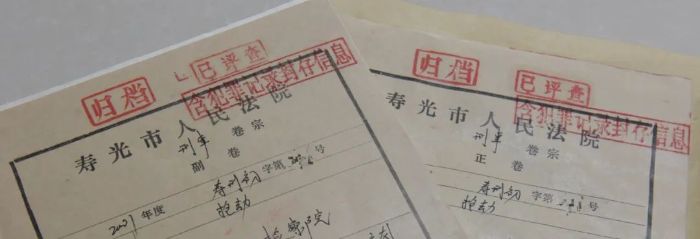 归档
已评查
含犯罪记录封存信息
寿光市人民法院
刑事 卷宗
副 卷
寿刑初 字第 号
年度
抢劫
归档
已评查
含犯罪记录封存信息
寿光市人民法院
刑事 卷宗
正 卷
寿刑初 字第 号
抢劫